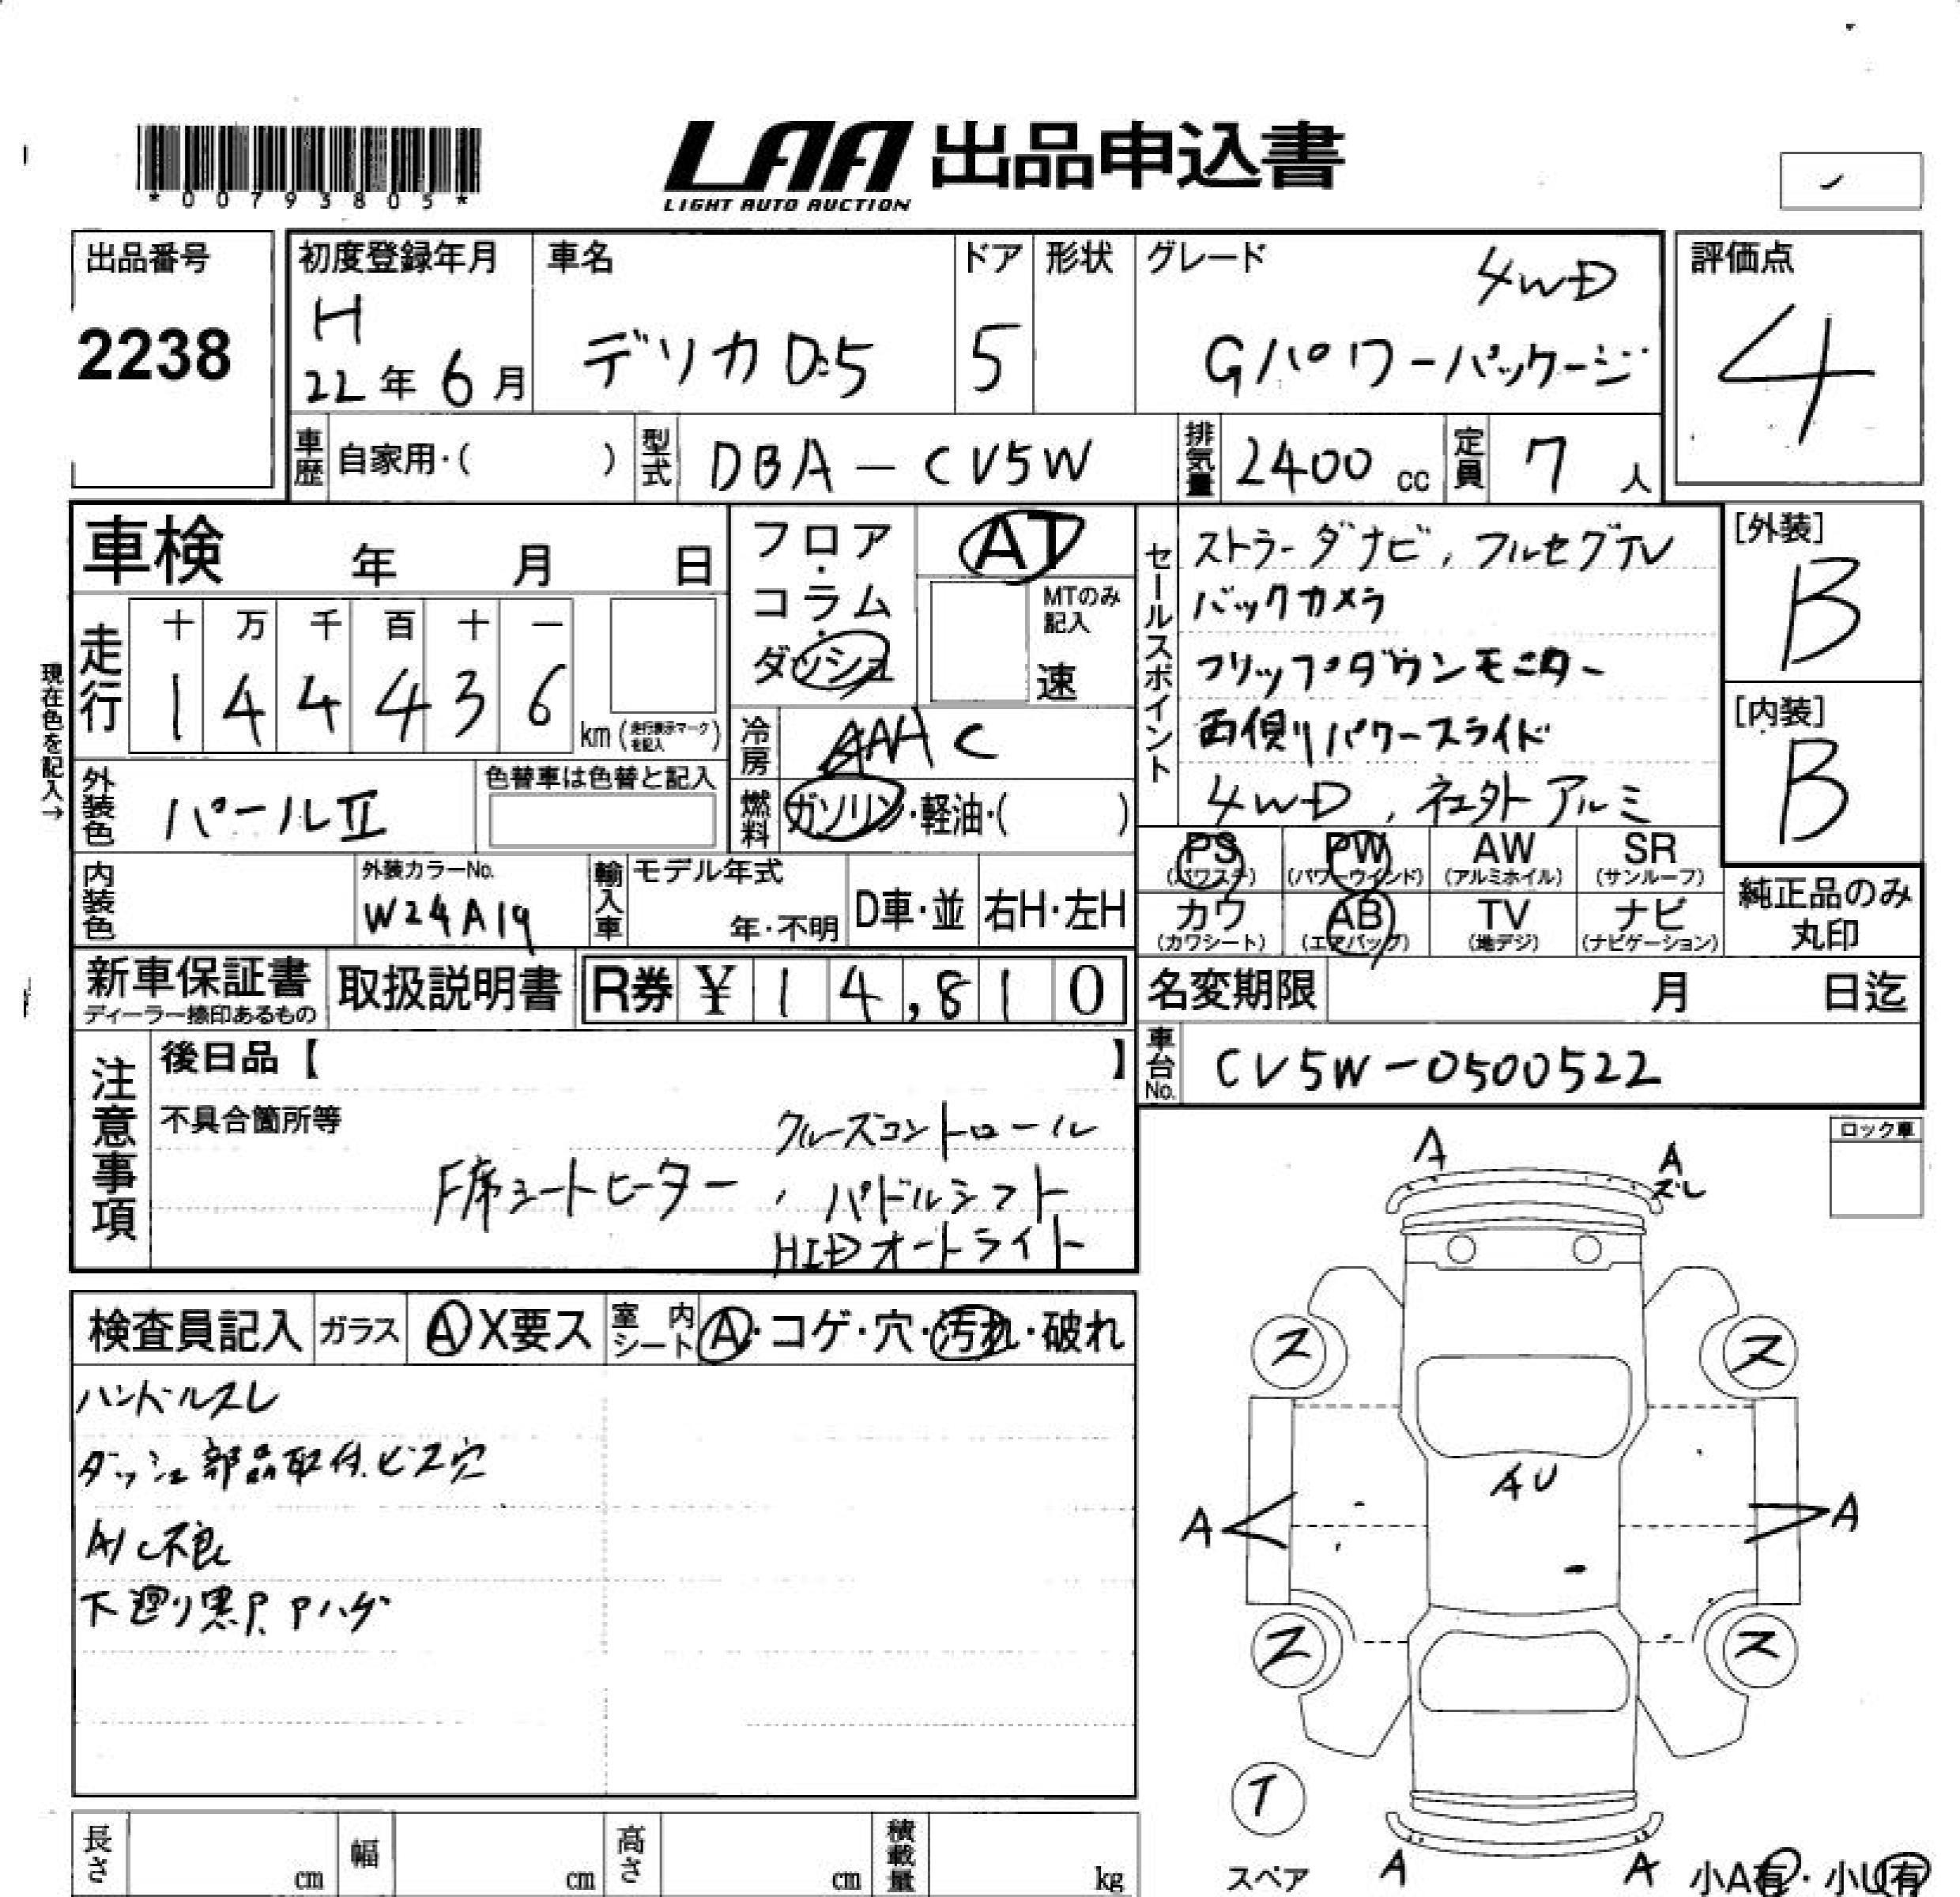 *00793805*
LAA 出品申込書
LIGHT AUTO AUCTION
出品番号
2238
初度登録年月
H
22年 6月
車名
デリカD:5
ドア
5
形状
グレード
4WD
Gパワーパッケージ
評価点
4
車歴 自家用・( )
型式 DBA-CV5W
排気量 2400 cc
定員 7 人
車検 年 月 日
走行 十 万 千 百 十 一
1 4 4 4 3 6 km (走行表示マークを記入)
現在色を記入→
フロア・コラム・ダッシュ
AT
MTのみ記入
速
冷房 AAC
燃料 ガソリン・軽油・( )
セールスポイント
ストラーダナビ, フルセグTV
バックカメラ
フリップダウンモニター
両側パワースライド
4WD, 社外アルミ
[外装]
B
[内装]
B
外装色 パールⅡ
色替車は色替と記入
内装色
外装カラーNo.
W24A19
輸入車
モデル年式
年・不明
D車・並
右H・左H
PS (パワステ)
PW (パワーウインド)
AW (アルミホイル)
SR (サンルーフ)
カワ (カワシート)
AB (エアバッグ)
TV (地デジ)
ナビ (ナビゲーション)
純正品のみ
丸印
新車保証書
ディーラー捺印あるもの
取扱説明書
R券 ¥ 14,810
名変期限 月 日迄
車台No. CV5W-0500522
注意事項
後日品【 】
不具合箇所等
クルーズコントロール
F席シートヒーター, パドルシフト
HIDオートライト
ロック車
検査員記入
ガラス A X要ス
室内シート A・コゲ・穴・汚れ・破れ
ハンドルスレ
ダッシュ部品取付ビス穴
A/C不良
下廻り黒P, Pハゲ
A
A
ズレ
ス
ス
AU
A
A
ス
ス
T
スペア
A
A
小A有・小U有
長さ cm
幅 cm
高さ cm
積載量 kg